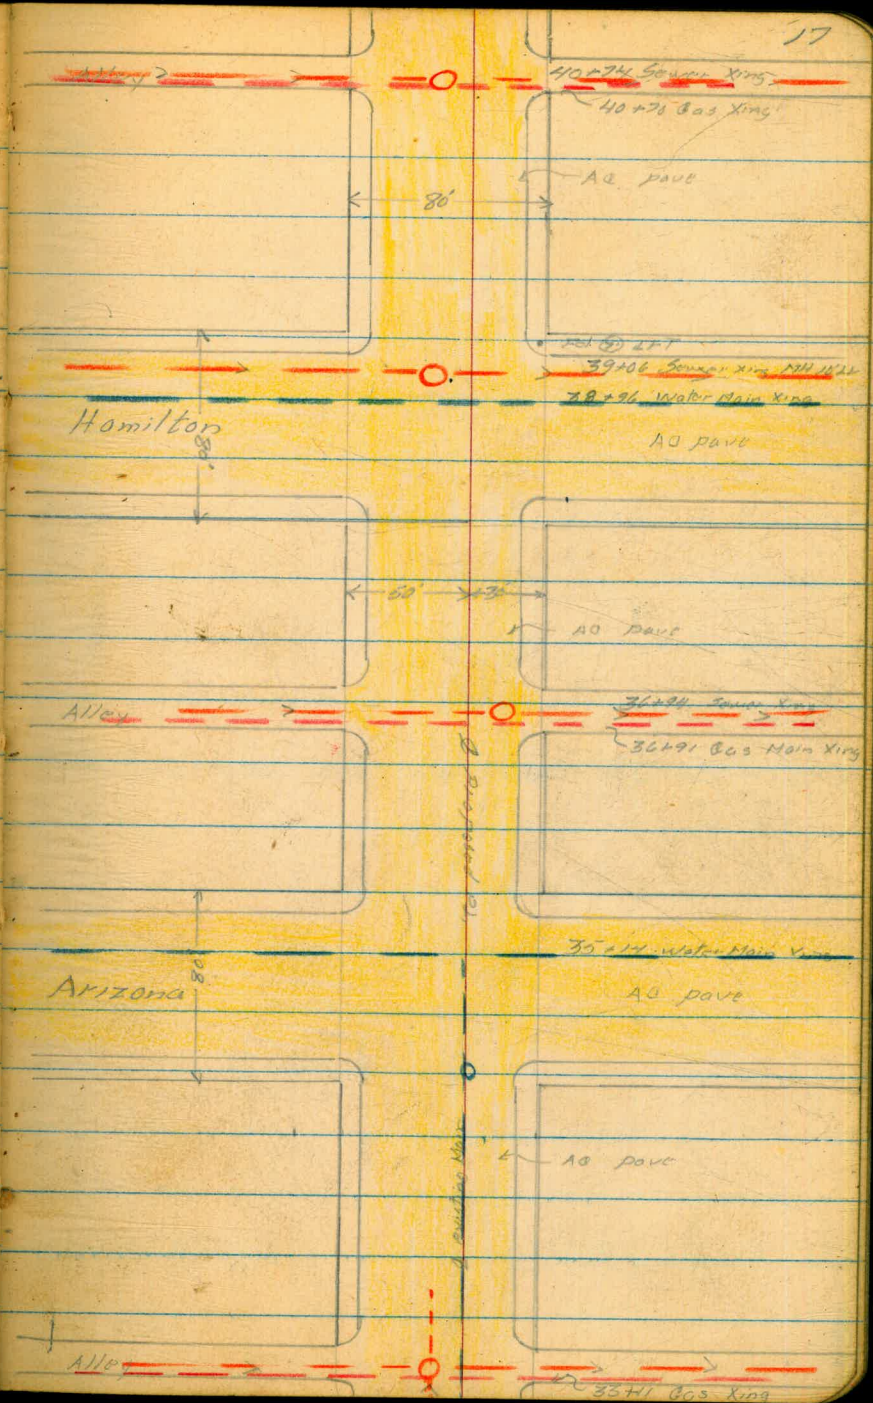 17
Alley
40+74 Sewer Xing
40+70 Gas Xing
AO pave
80'
39+06 Sewer Xing MH
38+96 Water Main Xing
Hamilton
80'
AO pave
50' 30'
AO pave
Alley
36+94 Sewer Xing
36+91 Gas Main Xing
℄ proposed
35+14 Water Main Xing
Arizona
80'
AO pave
AO pave
℄ existing Main
Alley
33+11 Gas Xing